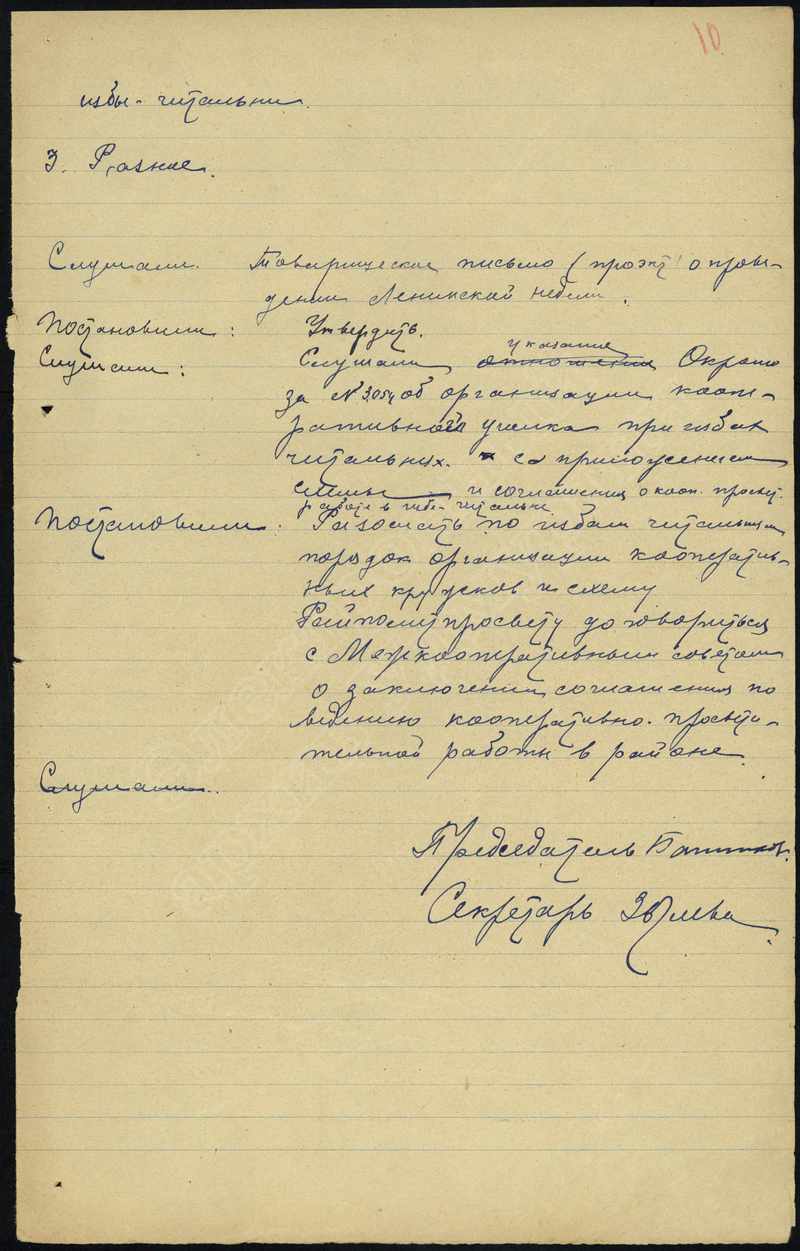 10
избы-читальни.
3. Разное.
Слушали. Товарищеское письмо (проэкт) о прове-
дении Ленинской недели.
Постановили: Утвердить.
указание
Слушали: Слушали отношение Окроно
за № 3054 об организации коопе-
ративного уголка при избах
читальнях. с приложением
схемы и соглашения о кооп. просвет.
работе в избе-читальне
Постановили: Разослать по избам читальням
порядок организации кооператив-
ных кружков и схему
Райполитпросвету договориться
с Межкооперативным советом
о заключении соглашения по
ведению кооперативно-просвети-
тельной работы в районе.
Слушали..
Председатель
Секретарь